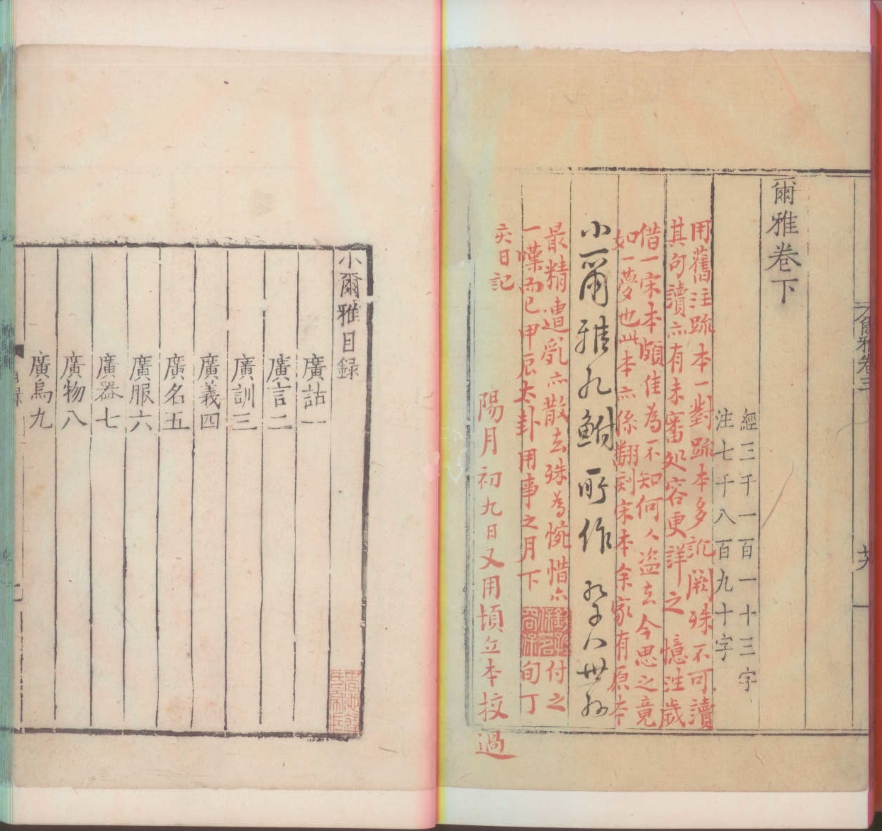 爾雅卷下
經三千一百一十三字
注七千八百九十字
用舊注疏本一對疏本多訛闕殊不可讀
其句讀亦有未審処容更詳之憶注歲
借一宋本頗佳為不知何人盗去今思之竟
如一夢也此本亦係翻刻宋本余家有原本
小爾雅孔鮒所作
最精遭乱亦散去殊為惋惜亦付之
一嘆而已甲辰夬卦用事之月下旬丁
亥日記
陽月初九日又用頃立本挍過
小爾雅目録
廣詁一
廣言二
廣訓三
廣義四
廣名五
廣服六
廣器七
廣物八
廣鳥九